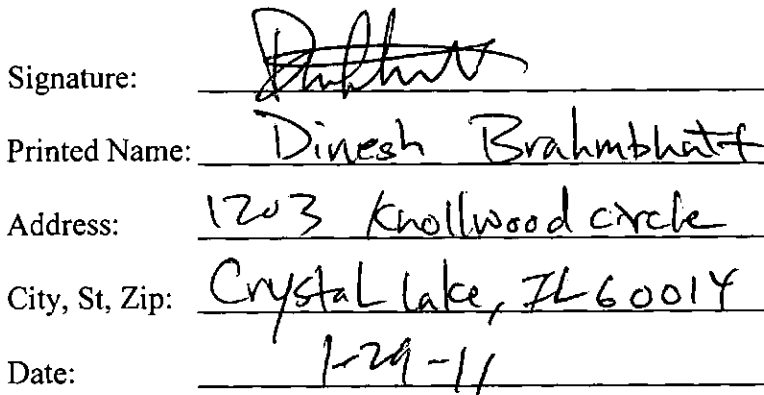 Signature:
Printed Name: Dinesh Brahmbhatt
Address: 1203 Knollwood circle
City, St, Zip: Crystal lake, IL 60014
Date: 1-29-11